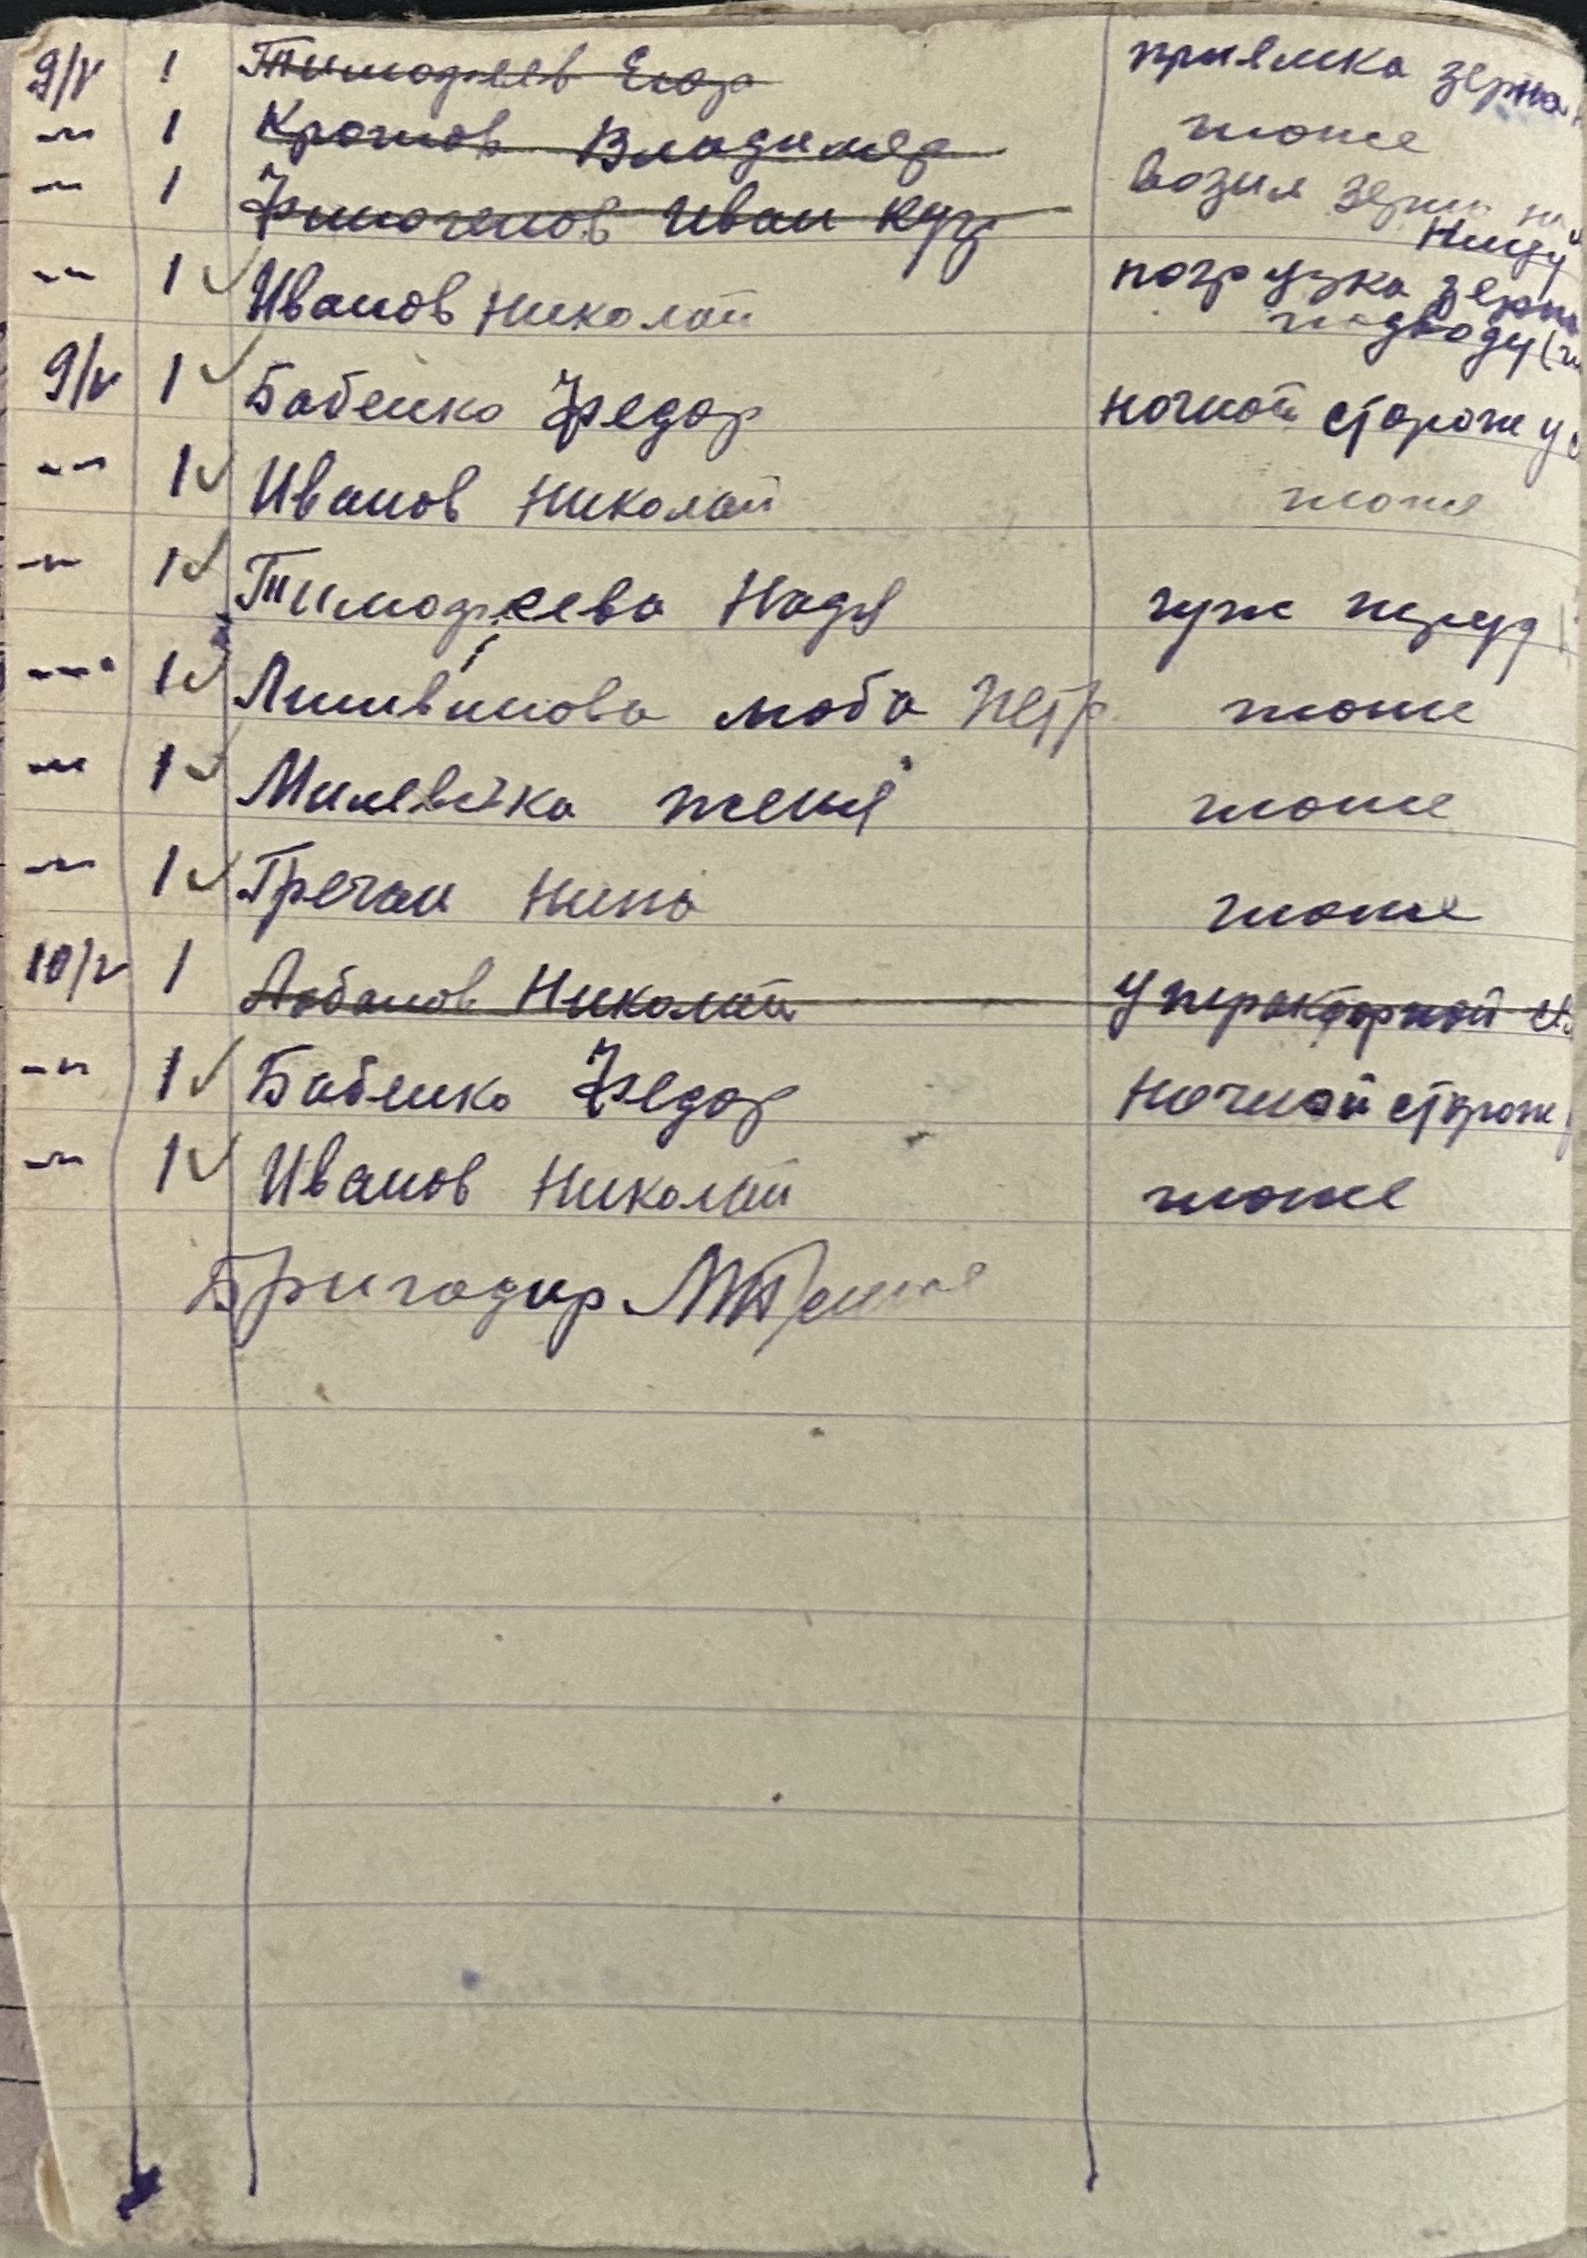 9/V 1 Тимофеев Егор приемка зерна
-"- 1 Кротов Владимер тоже
-"- 1 Финогенов Иван Куз возил зерно на
Ницу
-"- 1 Иванов Николай погрузка зерна
подводу
9/V 1 Бабенко Федор ночной сторож у
-"- 1 Иванов Николай тоже
-"- 1 Тимофеева Надя гуж
-"- 1 Литвинова люба Петр тоже
-"- 1 женя тоже
-"- 1 Гречан Нина тоже
10/V 1 Лобанов Николай У тракторной
-"- 1 Бабенко Федор Ночной сторож
-"- 1 Иванов Николай тоже
Бригадир